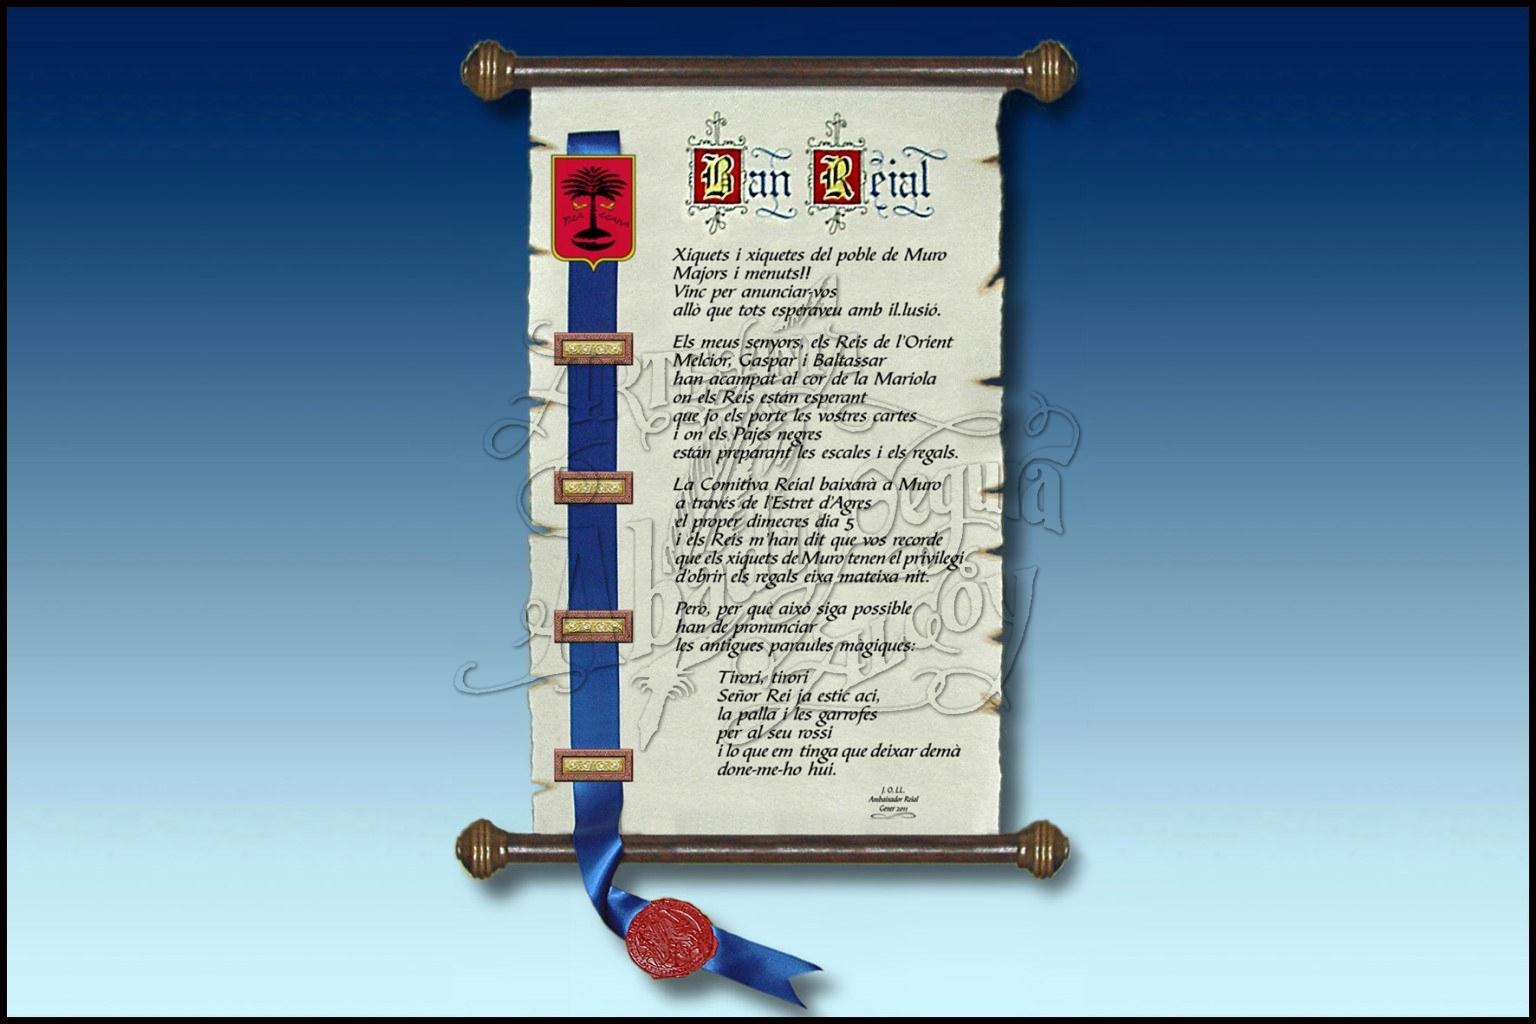 Ban Reial
Xiquets i xiquetes del poble de Muro
Majors i menuts!!
Vinc per anunciar-vos
allò que tots esperàveu amb il.lusió.
Els meus senyors, els Reis de l'Orient
Melcior, Gaspar i Baltassar
han acampat al cor de la Mariola
on els Reis están esperant
que jo els porte les vostres cartes
i on els Pajes negres
están preparant les escales i els regals.
La Comitiva Reial baixarà a Muro
a través de l'Estret d'Agres
el proper dimecres dia 5
i els Reis m'han dit que vos recorde
que els xiquets de Muro tenen el privilegi
d'obrir els regals eixa mateixa nit.
Però, per què això siga possible
han de pronunciar
les antigues paraules màgiques:
Tirorí, tirorí
Señor Rei ja estic ací,
la palla i les garrofes
per al seu rossí
i lo que em tinga que deixar demà
done-me-ho hui.
J. O. LL.
Ambaixador Reial
Gener 2011
Abad Segura
Alcoy